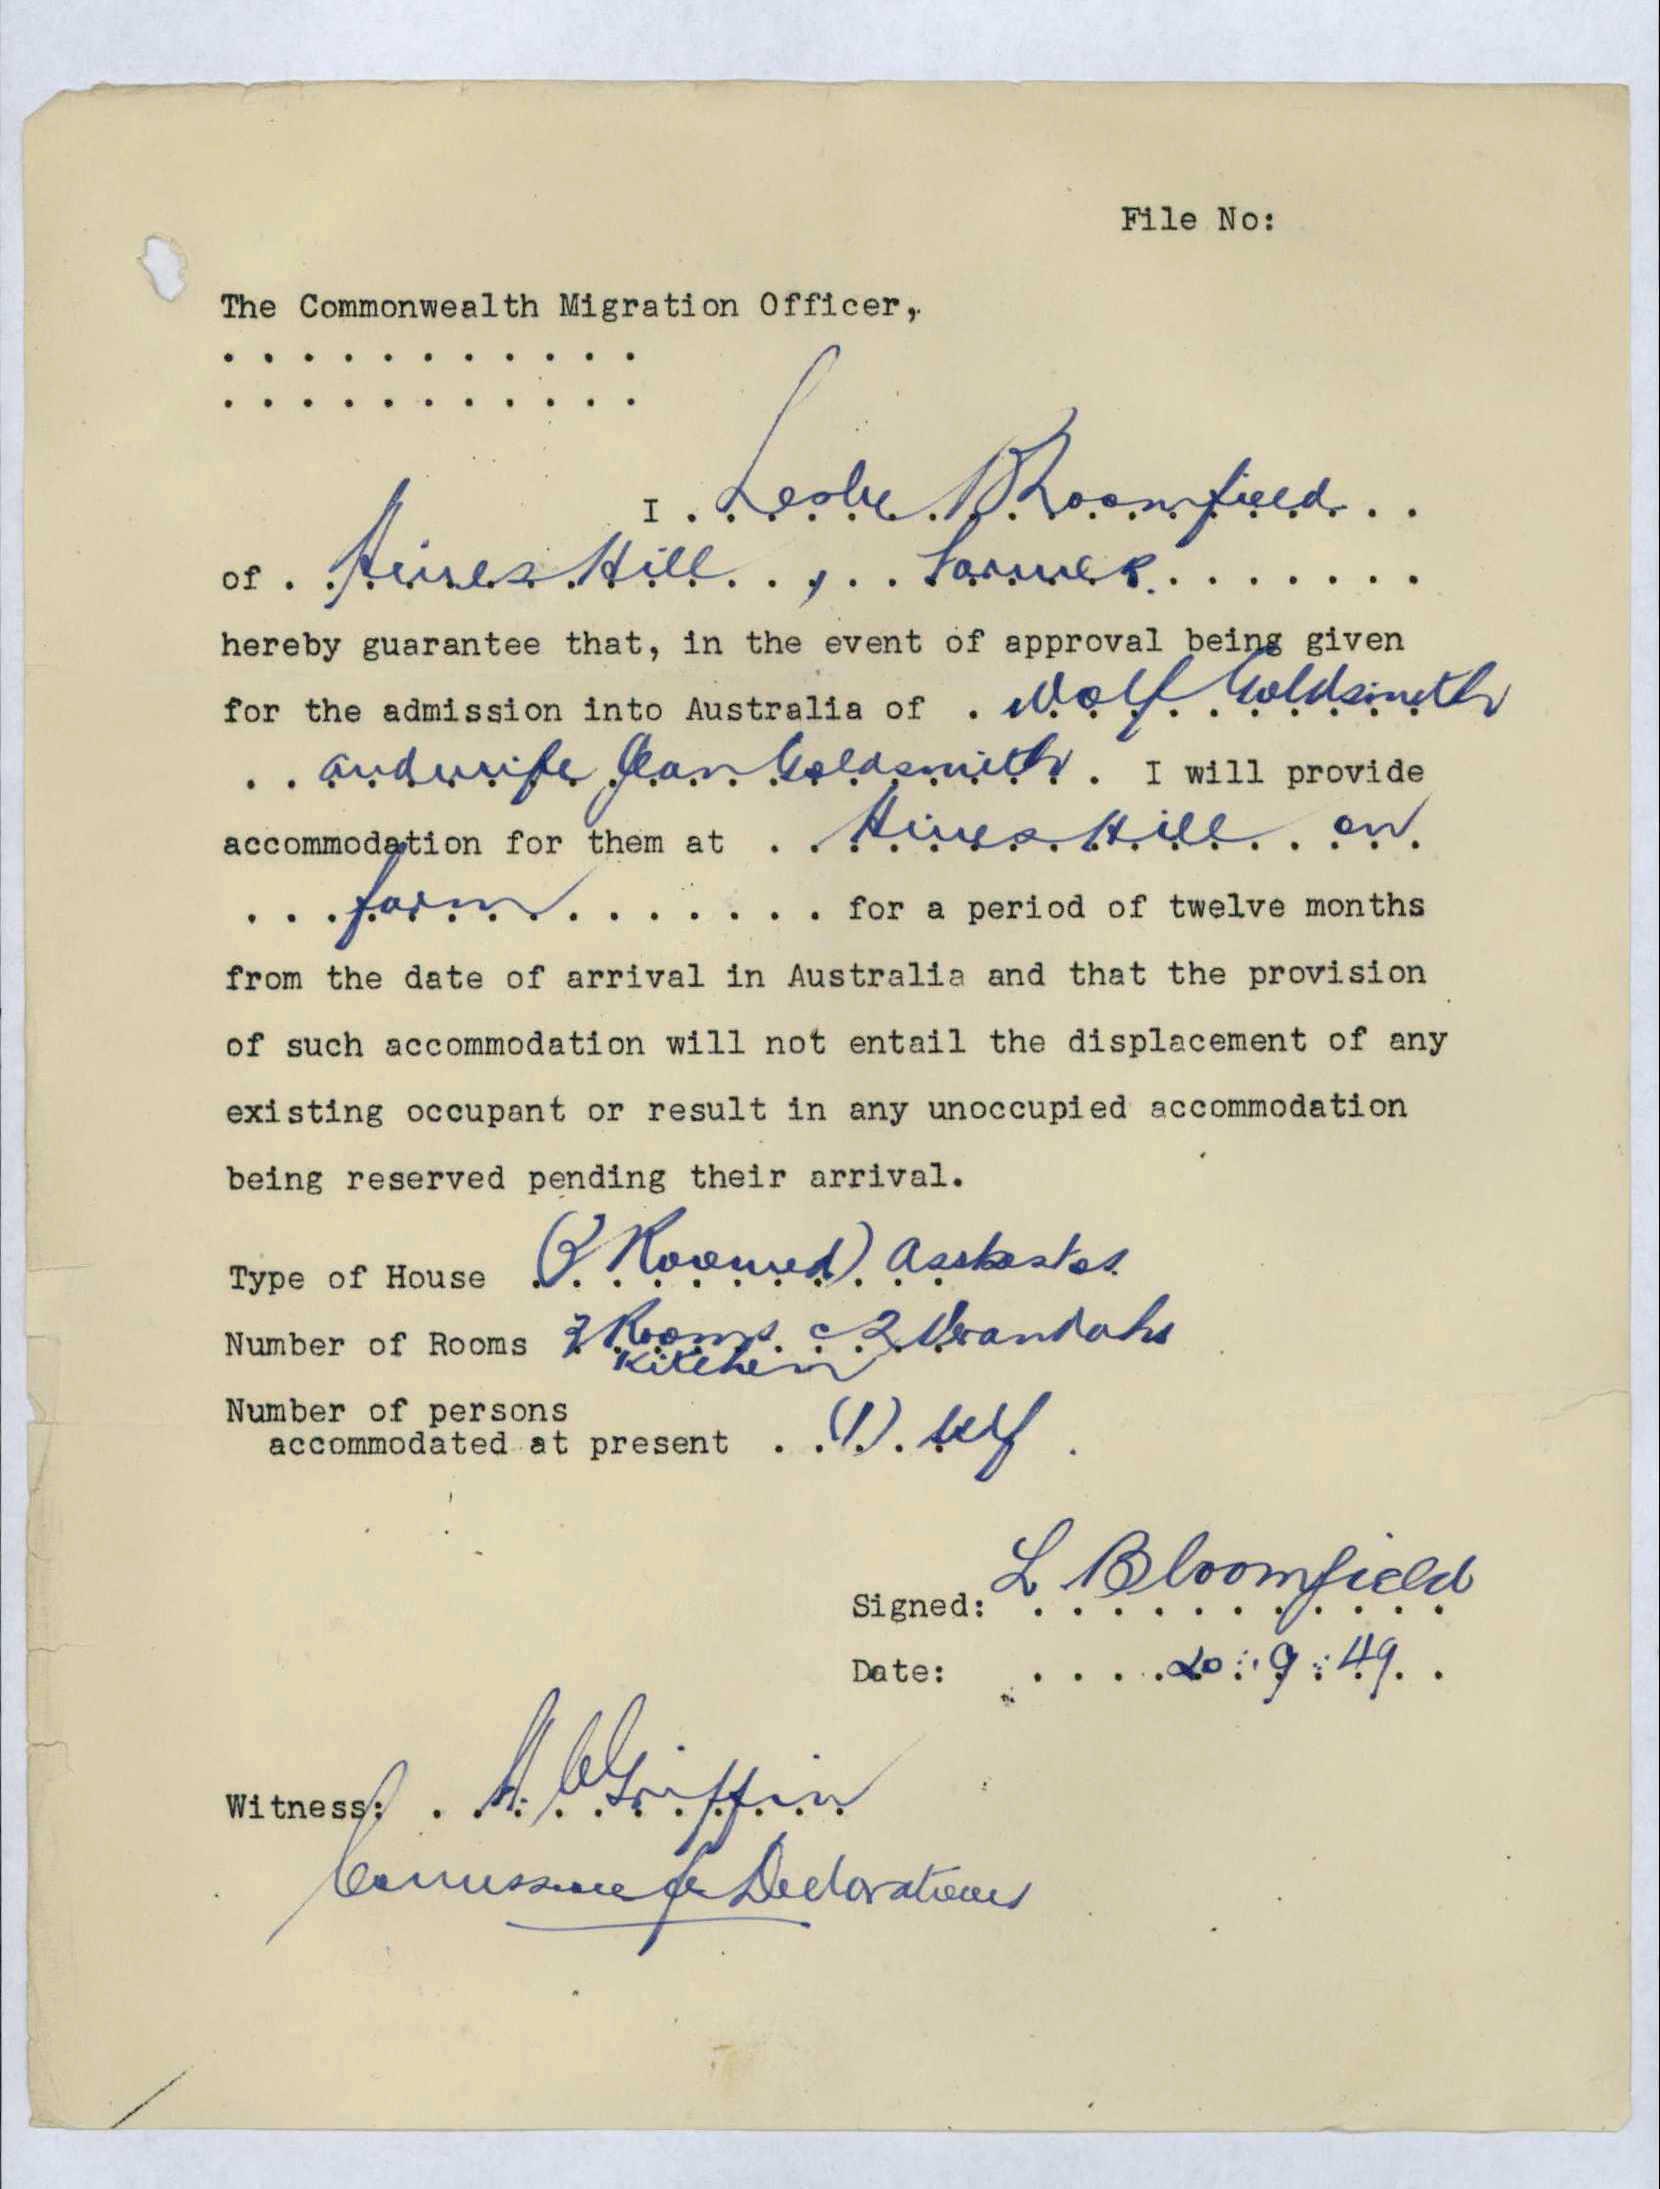 File No:
The Commonwealth Migration Officer,
. . . . . . . . . . .
. . . . . . . . . . .
I Leslie Bloomfield
of Hines Hill , Farmer
hereby guarantee that, in the event of approval being given
for the admission into Australia of Wolf Goldsmith
and wife Jean Goldsmith. I will provide
accommodation for them at Hines Hill on
farm for a period of twelve months
from the date of arrival in Australia and that the provision
of such accommodation will not entail the displacement of any
existing occupant or result in any unoccupied accommodation
being reserved pending their arrival.
Type of House ( Roomed) Asbestos
Number of Rooms Rooms c 2 Verandahs
Kitchen
Number of persons
accommodated at present (1) self
Signed: L Bloomfield
Date: 20:9:49
Witness: Griffin
Declarations